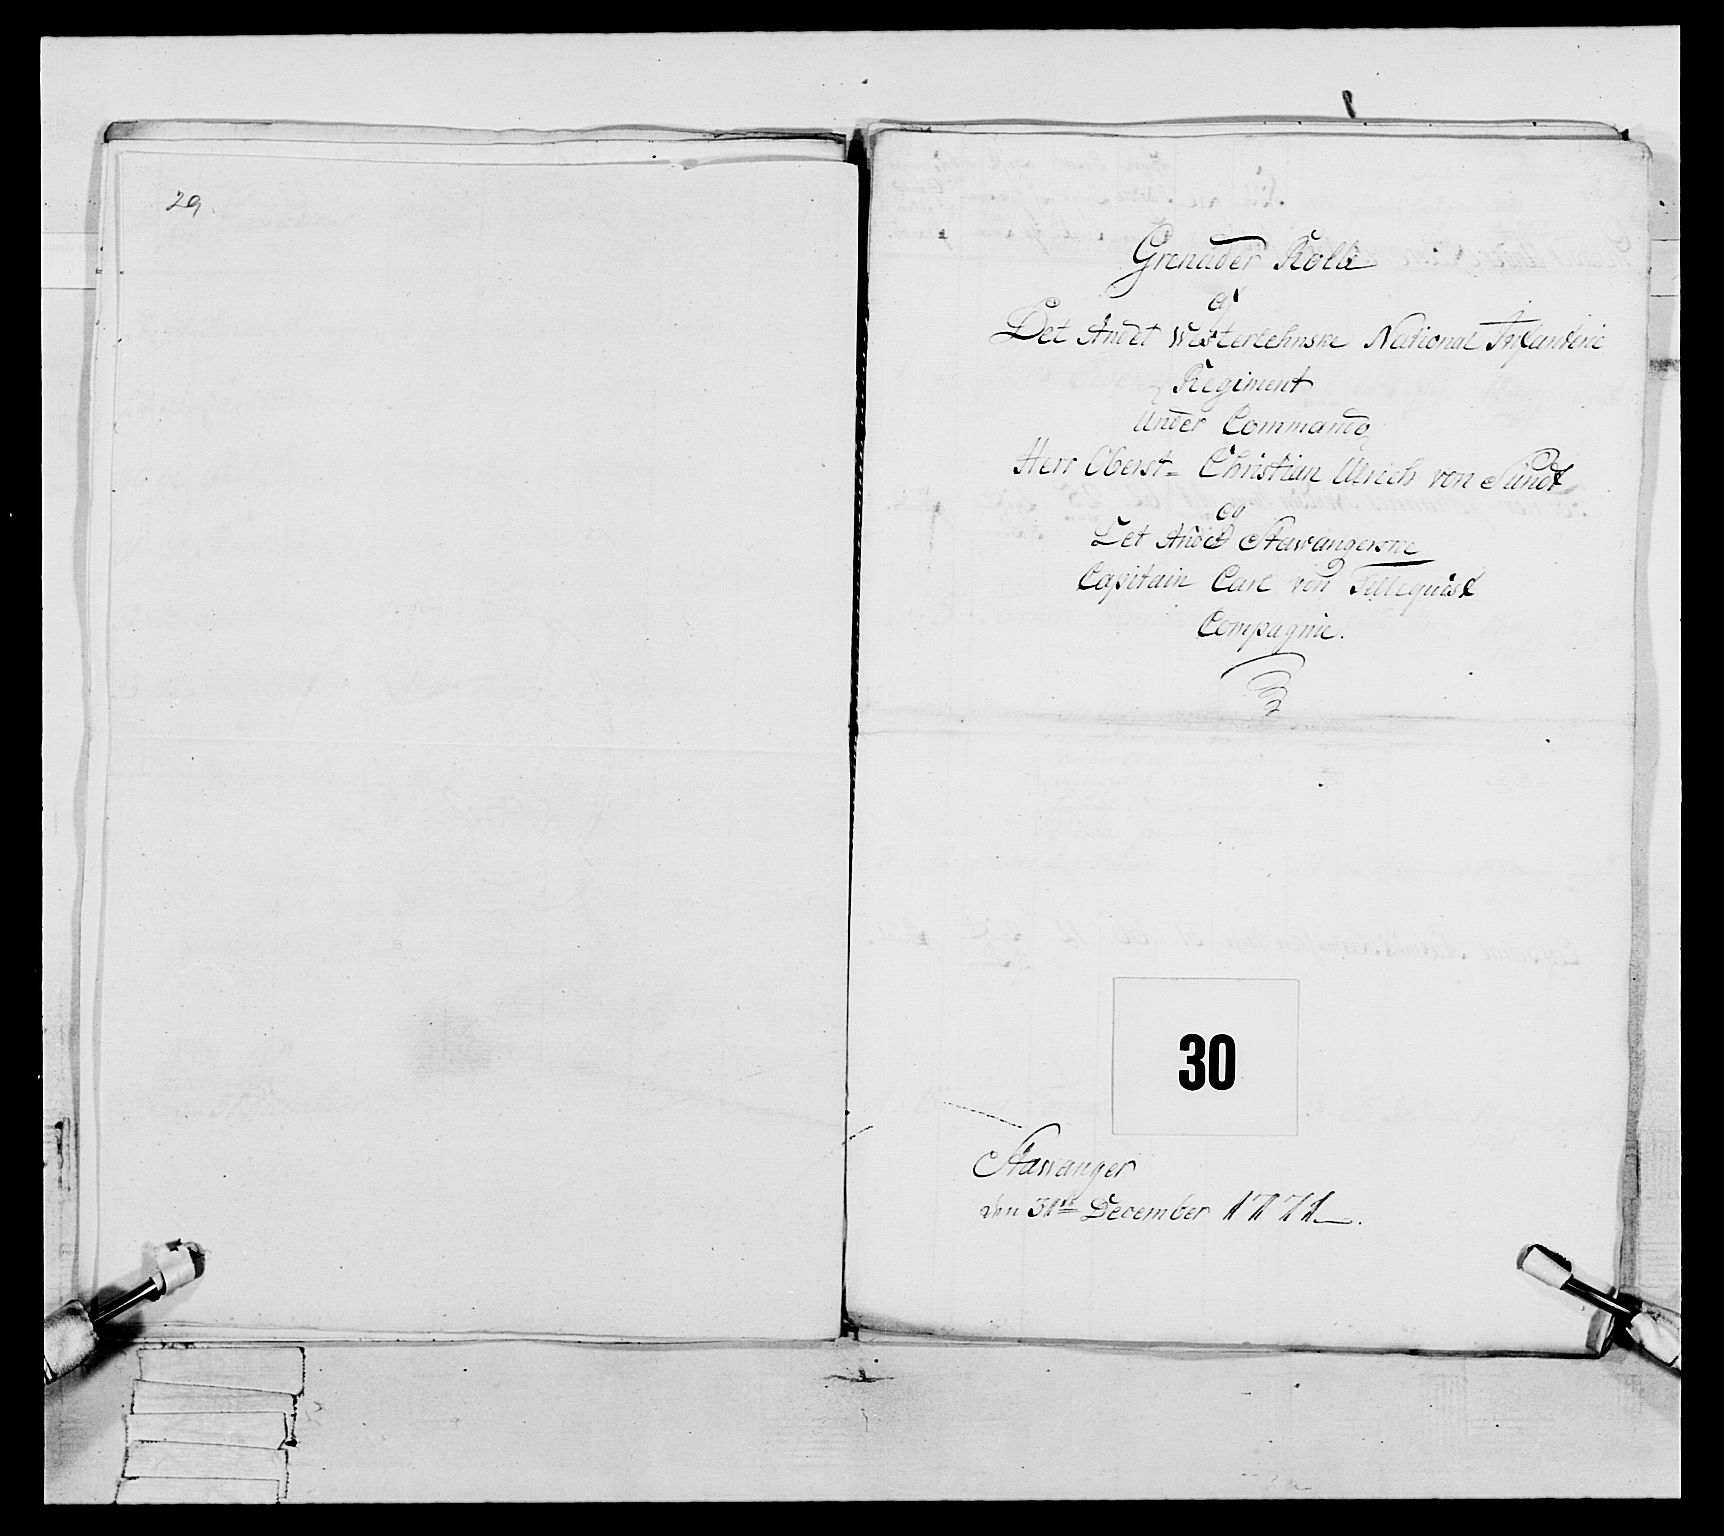 29.
Grenadér Rolle
af
Det Andet Westerlehnske National Infanterie
Regiment
Under Commando
Herr Oberst= Christian Ulrich von Sundt
og
Det Andet Stawangerske
Capitain Carl von Fillequist
Compagnie.
30
Stawanger
den 31te December 1771.